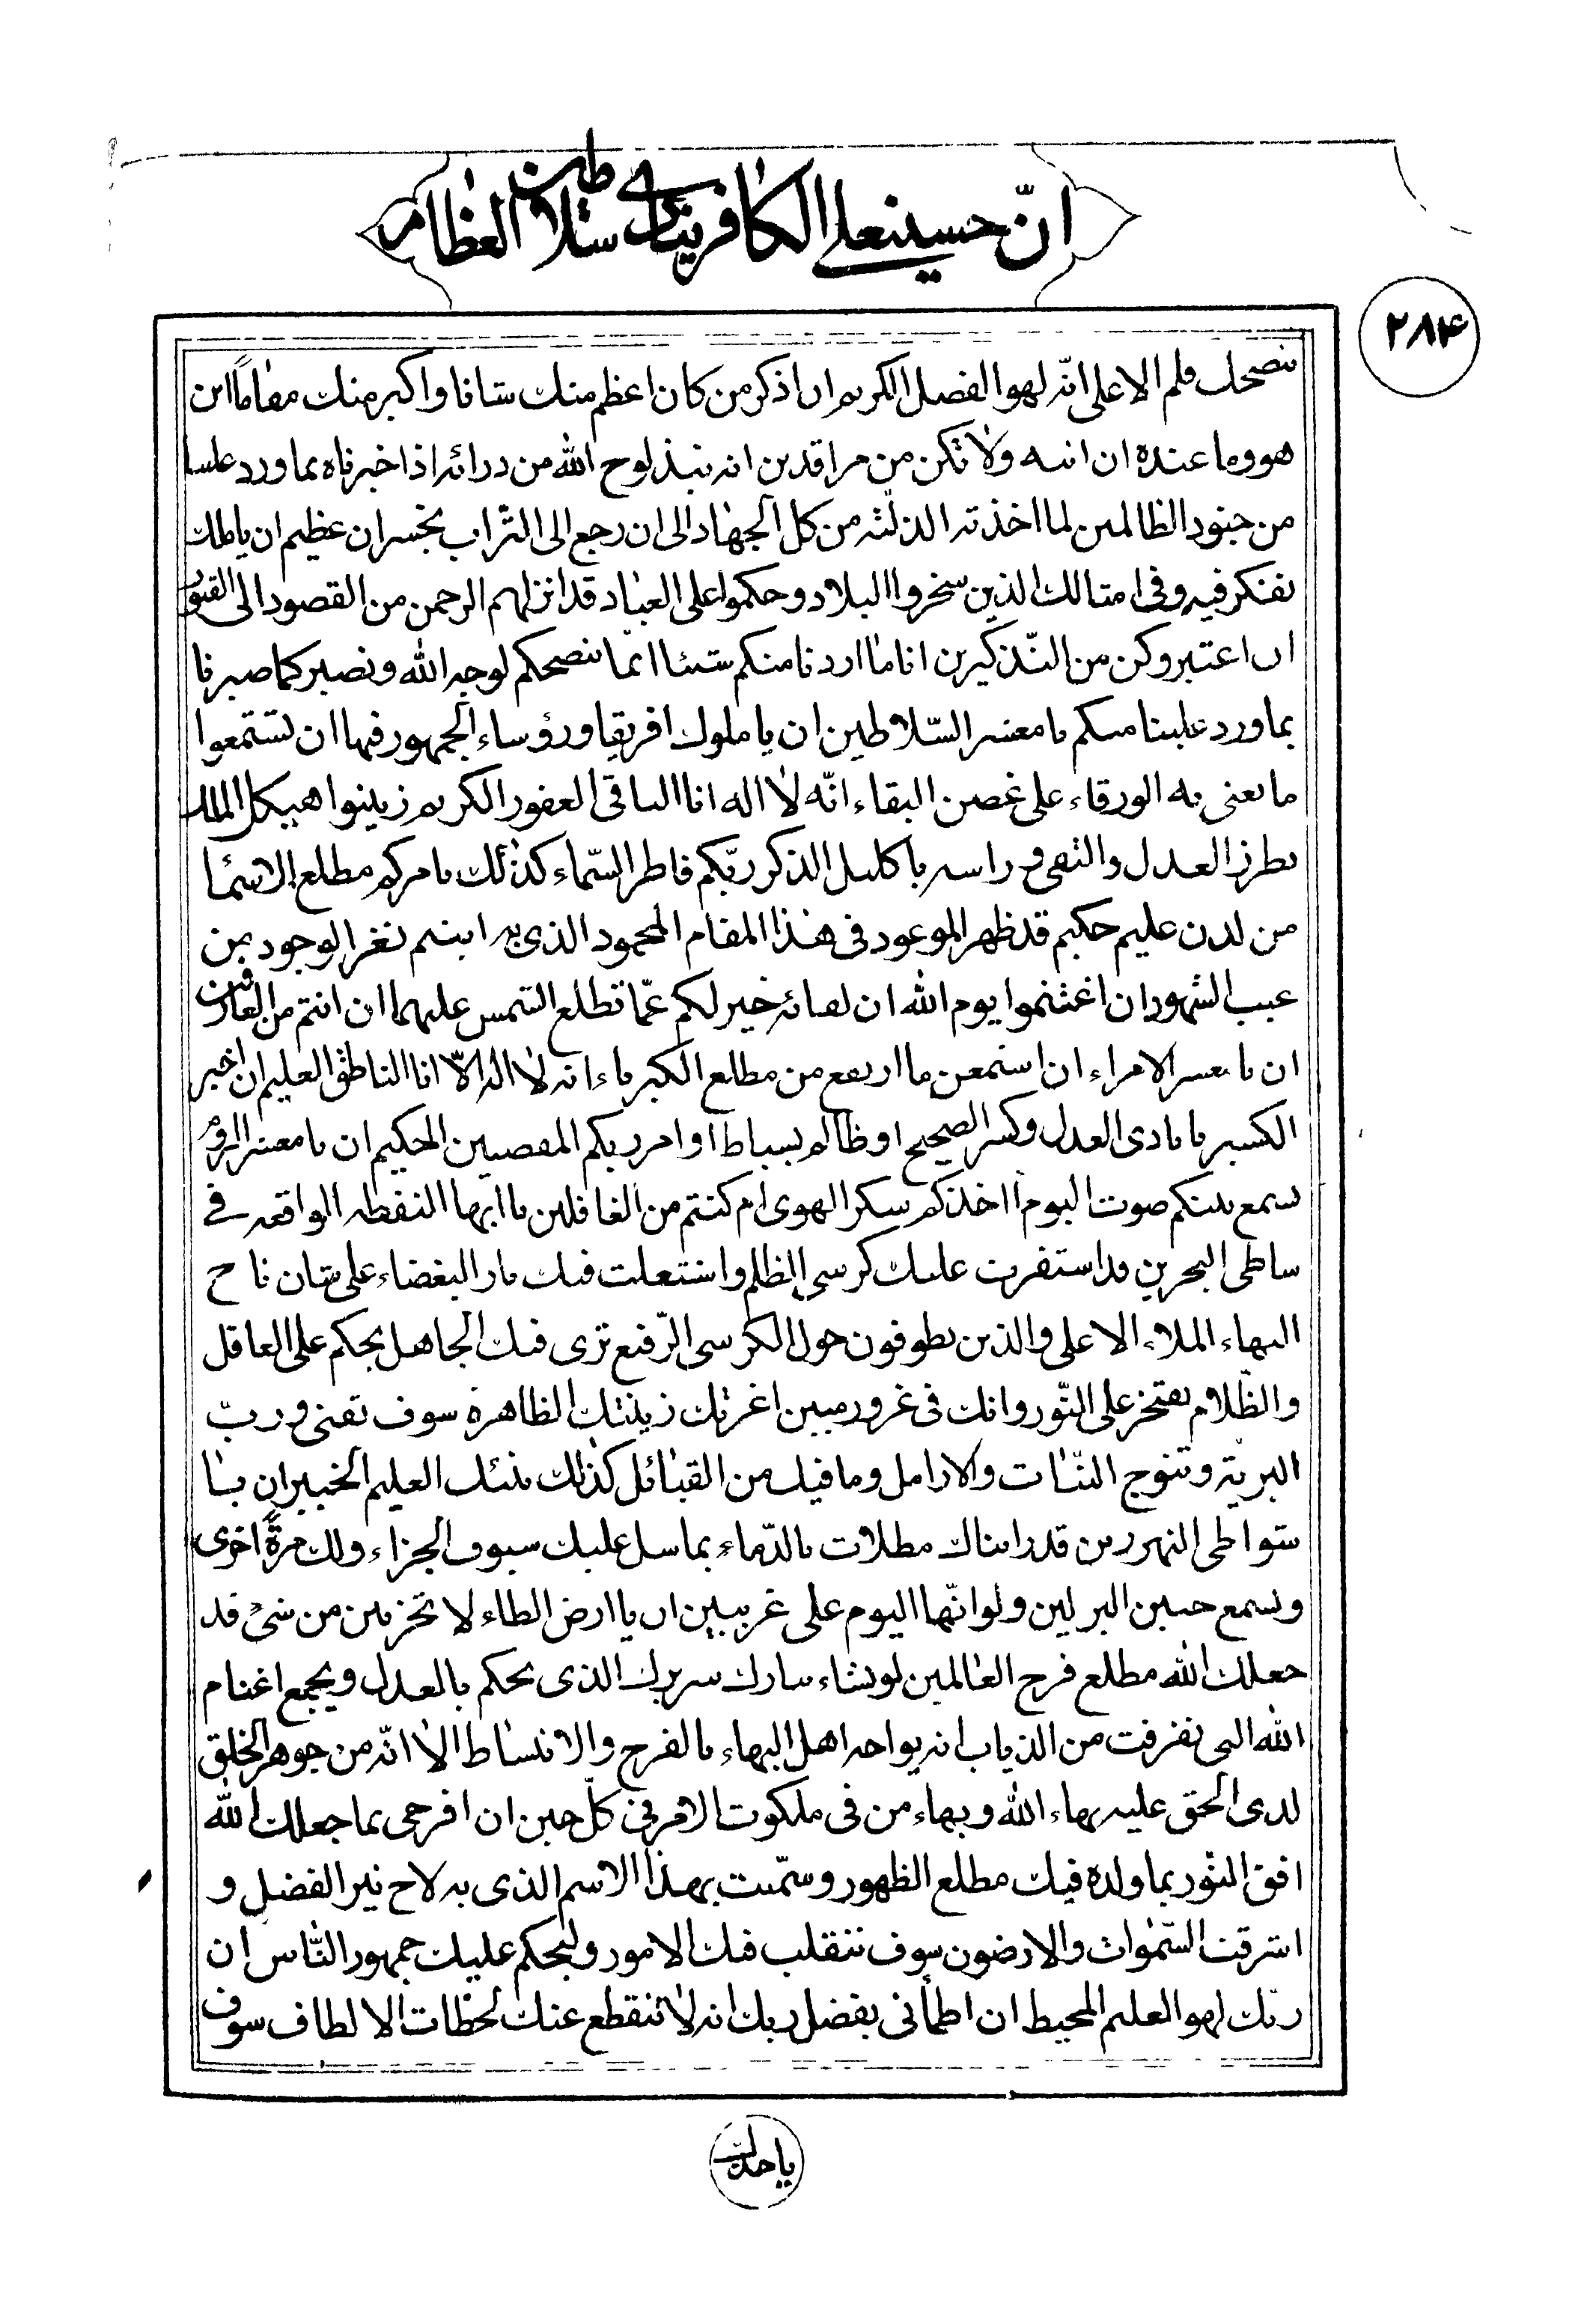 انّ حسینعلی الکافر ینادی سلاطین العظام
۲۸۴
ننصحك قلم الاعلی انّه لهو الفضل الکریم ان اذکر من کان اعظم منك شانا و اکبر منك مقاماً این
هو و ما عنده ان انتبه ولا تکن من مراقدین انه نبذ لوح الله من ورائه اذا اخبرناه بما ورد علینا
من جنود الظالمین لما اخذته الذلّته من کل الجهاد الی ان رجع الی التّراب بخسران عظیم ان یا ملك
تفکر فیه و فی امثالك الذین سخروا البلاد و حکموا علی العباد قد انزلهم الرحمن من القصود الی القبور
ان اعتبر و کن من التّذکیرین انا ما اردنا منکم شیئا انّما ننصحکم لوجه الله و نصبر کما صبرنا
بما ورد علینا منکم یا معشر السّلاطین ان یا ملوك افریقا و رؤساء الجمهور فیها ان تستمعوا
ما تغنی به الورقاء علی غصن البقاء انّه لا اله انا الباقی الغفور الکریم زینوا هیکل الملك
بطرز العدل والتقی و راسه باکلیل الذکر ربّکم فاطر السّماء کذلك یامرکم مطلع الاسما
من لدن علیم حکیم قد ظهر الموعود فی هذا المقام المحمود الذی به ابتسم ثغر الوجود من
عیب الشهور ان اغتنموا یوم الله ان لقائه خیر لکم عمّا تطلع الشمس علیها ان انتم من العارفین
ان یا معشر الامراء ان استمعن ما ارتفع من مطلع الکبریاء انه لا اله الّا انا الناطق العلیم ان اخبر
الکسیر یا یادی العدل و کسر الصحیح او ظالم بسیاط اوامر ربکم المقصین الحکیم ان یا معشر الروم
نسمع بینکم صوت البوم أاخذکم سکر الهوی ام کنتم من الغافلین یا ایها النقطه الواقعه فی
ساطی البحرین قد استقرت علیك کرسی الظلم و اشتعلت فیك نار البغضاء علی شان ناح
البهاء الملاء الاعلی والذین یطوفون حول الکرسی الرّفیع نری فیك الجاهل یحکم علی العاقل
والظّلام یفتخر علی النّور و انك فی غرور مبین اغرتك زینتك الظاهرة سوف تفنی و ربّ
البریّه و تنوح البنات والارامل و ما فیك من القبائل کذلك ینبئك العلیم الخبیر ان یا
شواطی النهررین قد رایناك مطلات بالدّماء بما سل علیك سیوف الجزاء و لك مرةً اخری
و نسمع حنین البرلین ولو انّها الیوم علی غربین ان یا ارض الطاء لا تحزنین من شئ قد
جعلك الله مطلع فرح العالمین لو یشاء یبارك سریرك الذی یحکم بالعدل و یجمع اغنام
الله التی تفرقت من الذیاب انه یواجه اهل البهاء بالفرح والانبساط الا انّه من جوهر الخلق
لدی الحق علیه بهاء الله و بهاء من فی ملکوت الامر فی کلّ حین ان افرحی بما جعلك الله
افق النّور بما ولده فیك مطلع الظهور و سمّیت بهذا الاسم الذی به لاح نیر الفضل و
اشرقت السّموات والارضون سوف تنقلب فیك الامور و لیحکم علیك جمهور النّاس ان
ربّك لهو العلیم المحیط ان اطمأنی بفضل ربك انه لا تنقطع عنك لحظات الالطاف سوف